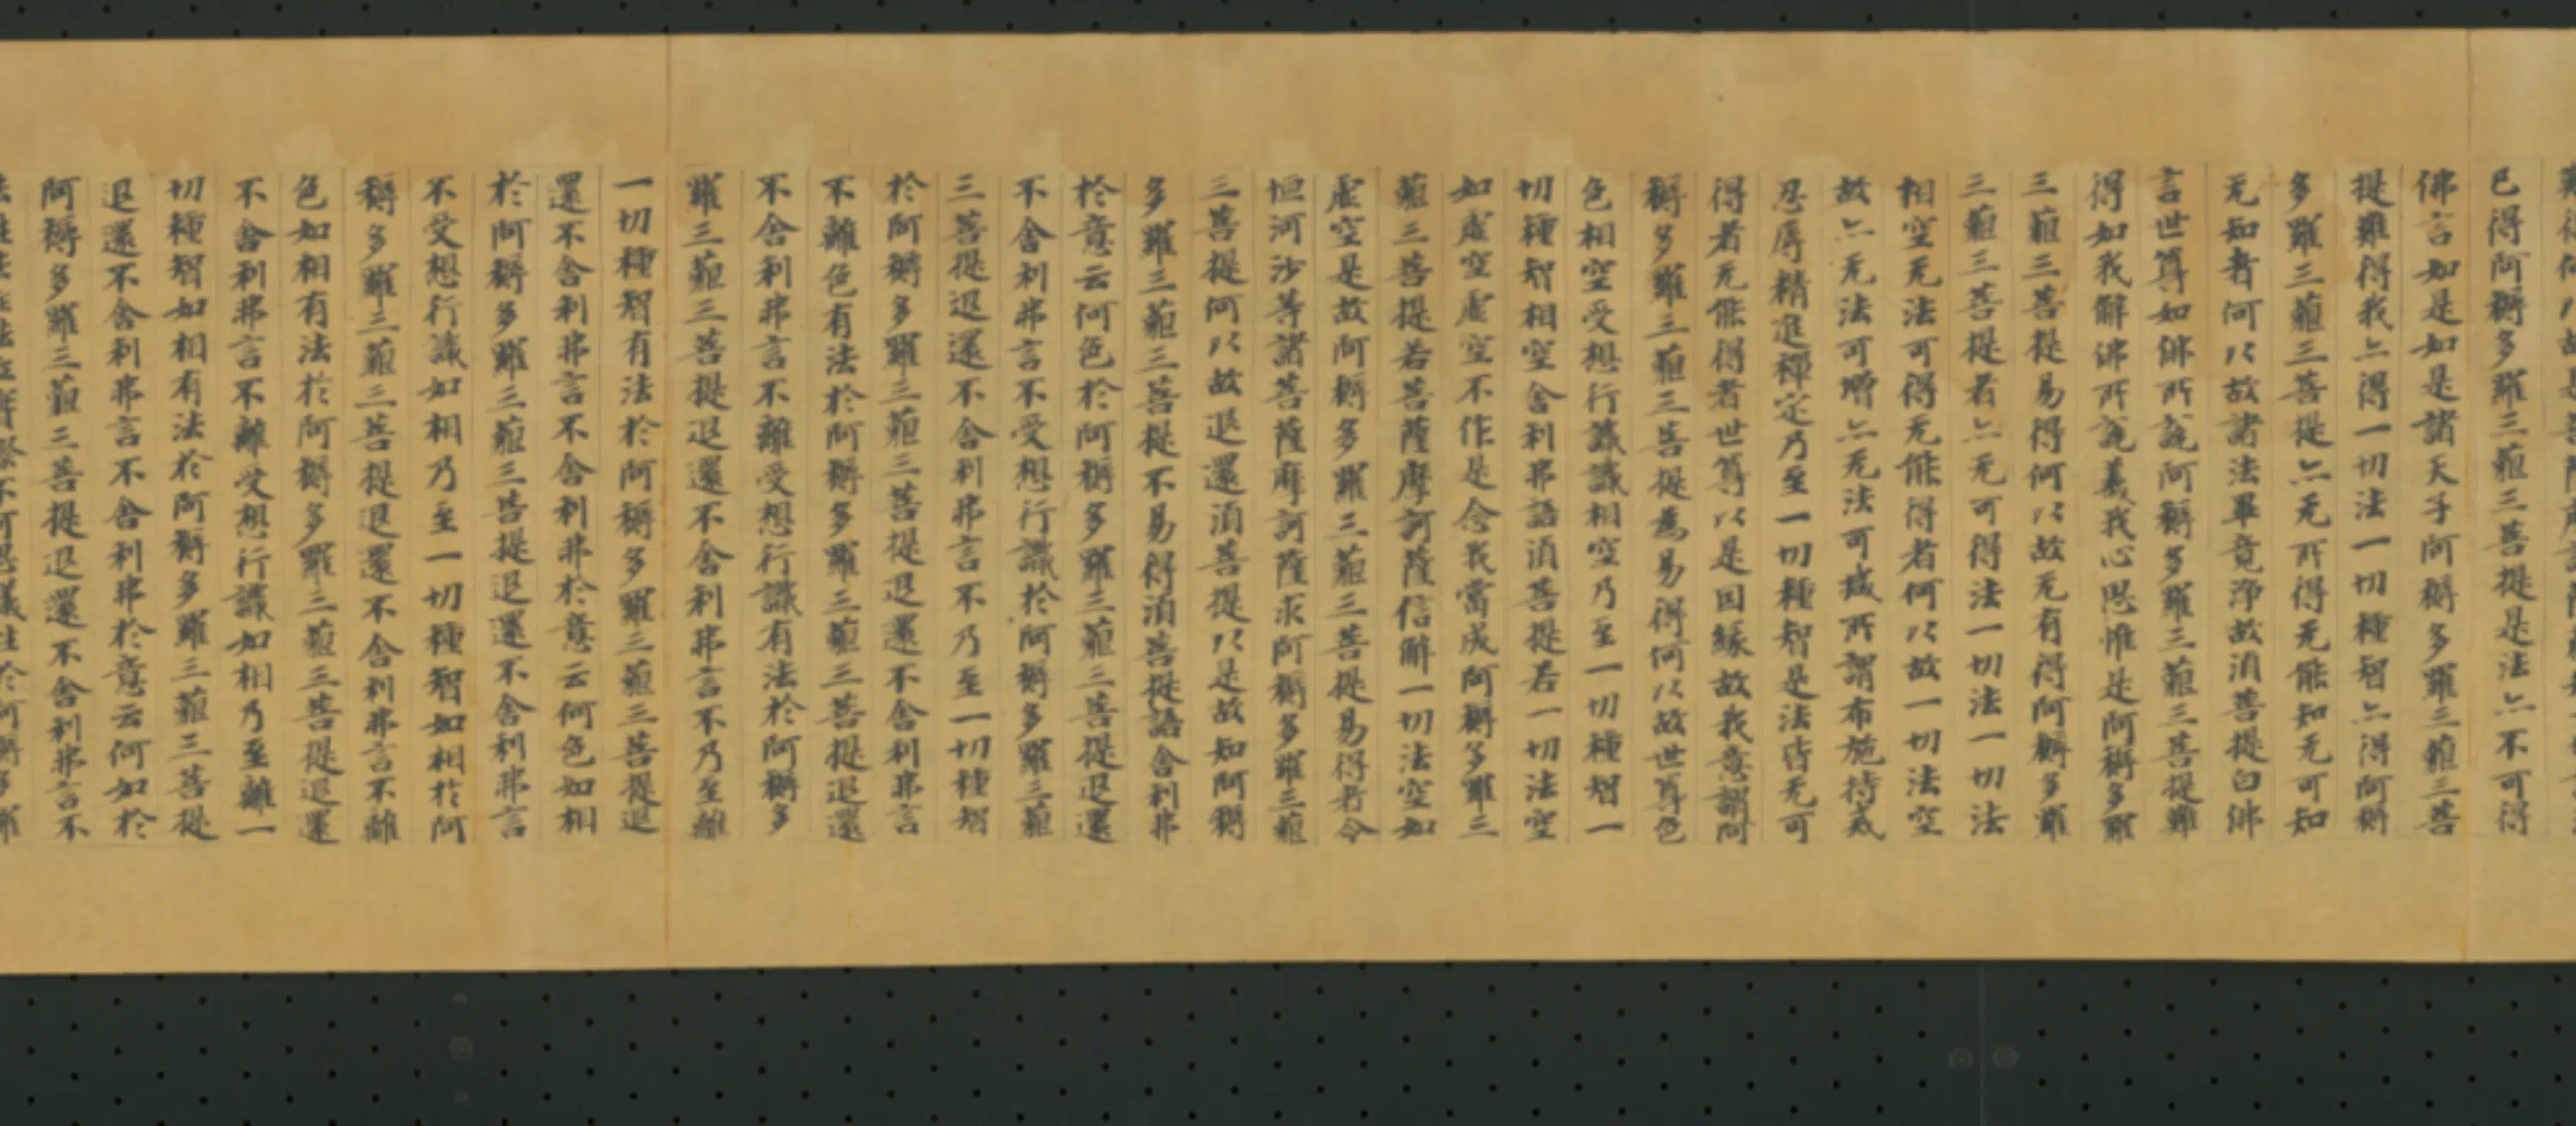 已得阿耨多羅三藐三菩提是法亦不可得
佛言如是如是諸天子阿耨多羅三藐三菩
提難得我亦得一切法一切種智亦得阿耨
多羅三藐三菩提亦无所得无能知无可知
无知者何以故諸法畢竟淨故湏菩提白佛
言世尊如佛所說阿耨多羅三藐三菩提難
得如我解佛所說義我心思惟是阿耨多羅
三藐三菩提易得何以故无有得阿耨多羅
三藐三菩提者亦无可得法一切法一切法
相空无法可得无能得者何以故一切法空
故亦无法可增亦无法可減所謂布施持戒
忍辱精進禪定乃至一切種智是法皆无可
得者无能得者世尊以是因緣故我意謂阿
耨多羅三藐三菩提為易得何以故世尊色
色相空受想行識識相空乃至一切種智一
切種智相空舍利弗語湏菩提若一切法空
如虛空虛空不作是念我當成阿耨多羅三
藐三菩提若菩薩摩訶薩信解一切法空如
虛空是故阿耨多羅三藐三菩提易得者今
恒河沙等諸菩薩摩訶薩求阿耨多羅三藐
三菩提何以故退還湏菩提以是故知阿耨
多羅三藐三菩提不易得湏菩提語舍利弗
於意云何色於阿耨多羅三藐三菩提退還
不舍利弗言不受想行識於阿耨多羅三藐
三菩提退還不舍利弗言不乃至一切種智
於阿耨多羅三藐三菩提退還不舍利弗言
不離色有法於阿耨多羅三藐三菩提退還
不舍利弗言不離受想行識有法於阿耨多
羅三藐三菩提退還不舍利弗言不乃至離
一切種智有法於阿耨多羅三藐三菩提退
還不舍利弗言不舍利弗於意云何色如相
於阿耨多羅三藐三菩提退還不舍利弗言
不受想行識如相乃至一切種智如相於阿
耨多羅三藐三菩提退還不舍利弗言不離
色如相有法於阿耨多羅三藐三菩提退還
不舍利弗言不離受想行識如相乃至離一
切種智如相有法於阿耨多羅三藐三菩提
退還不舍利弗言不舍利弗於意云何如於
阿耨多羅三藐三菩提退還不舍利弗言不